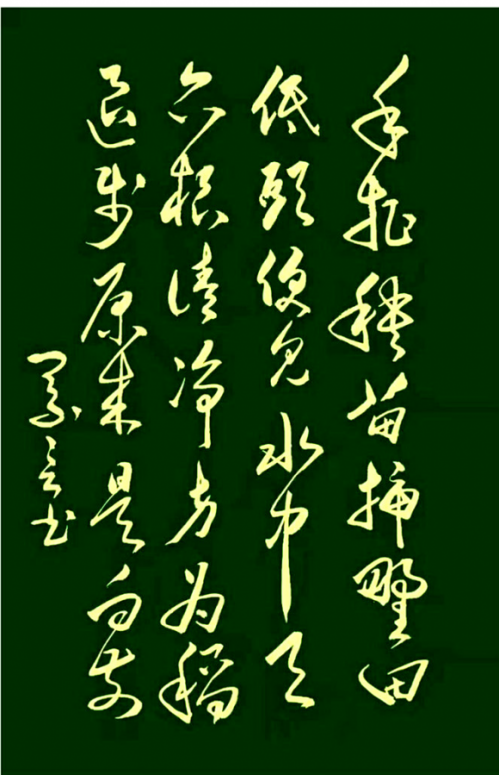 手把秧苗插野田
低頭便见水中天
六根清净方为稻
退步原来是向前
书